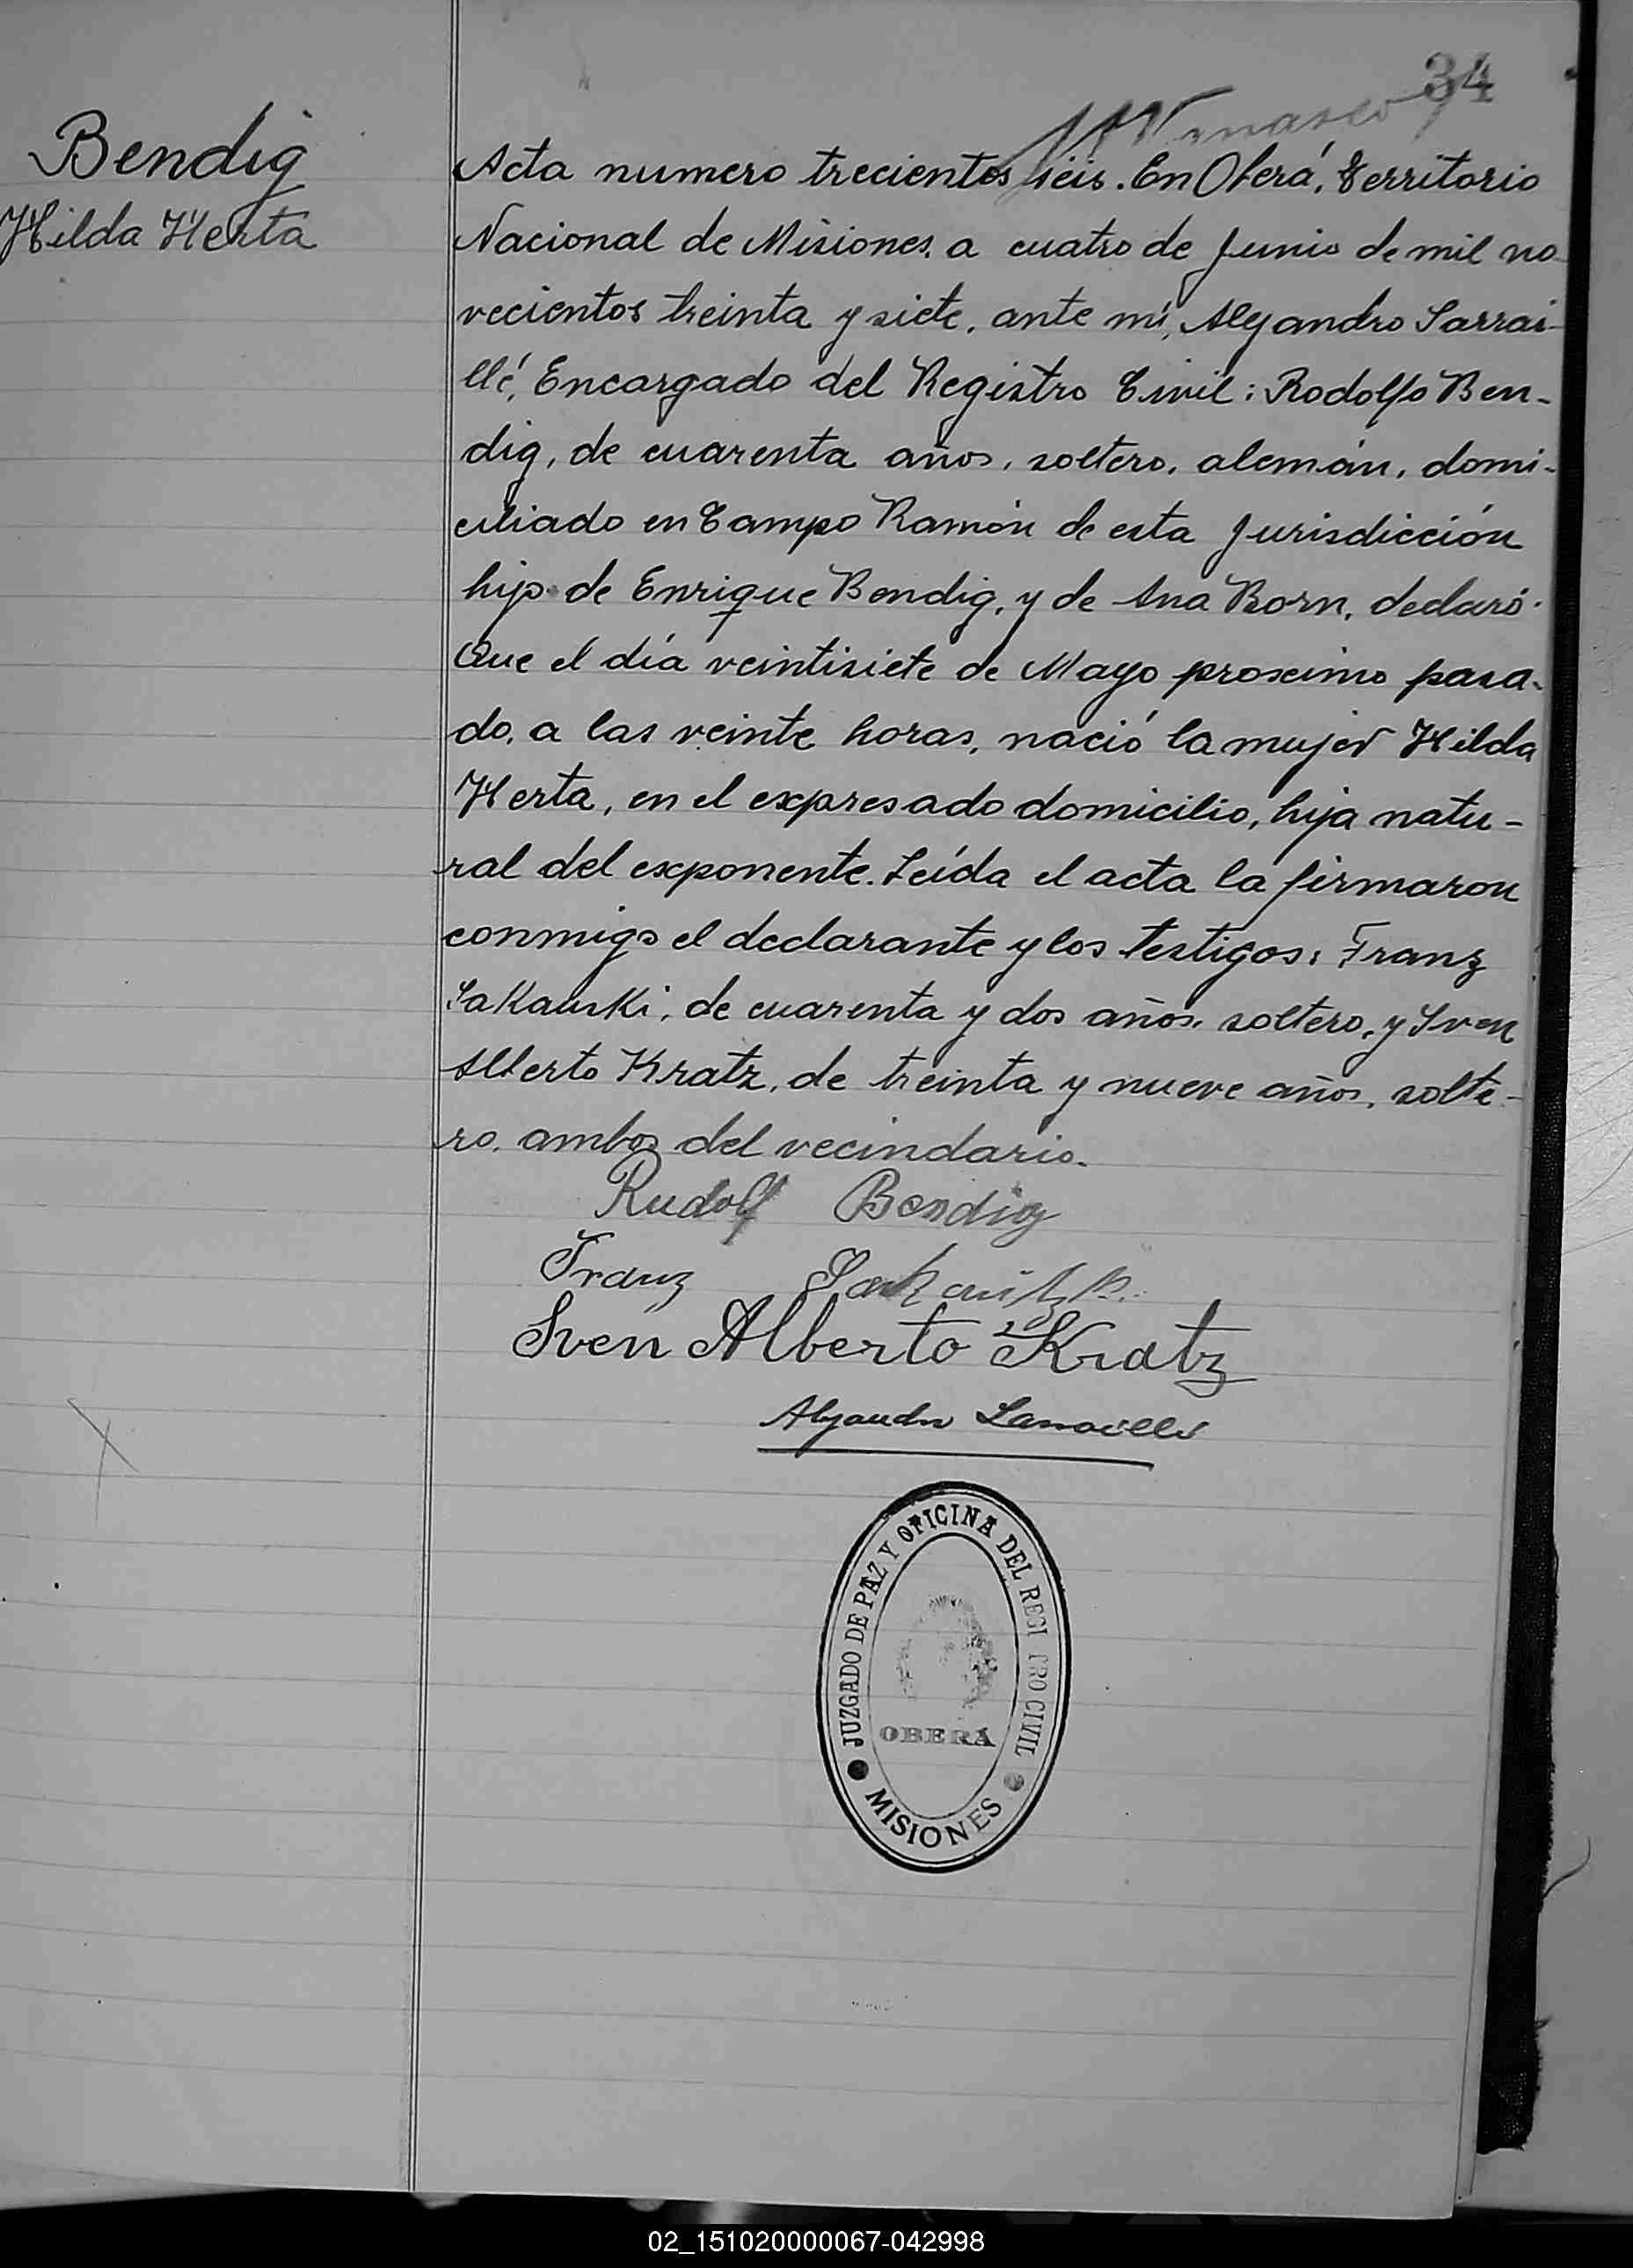 34
Bendig
Hilda Herta
Acta numero trecientos seis. En Oberá, Territorio
Nacional de Misiones, a cuatro de Junio de mil no
vecientos treinta y siete, ante mí, Alejandro Sarrai-
llé, Encargado del Registro Civil: Rodolfo Ben-
dig, de cuarenta años, soltero, alemán, domi-
ciliado en Campo Ramón de esta Jurisdicción
hijo de Enrique Bendig, y de Ana Born, declaró.
Que el día veintisiete de Mayo proximo pasa-
do, a las veinte horas, nació la mujer Hilda
Herta, en el expresado domicilio, hija natu-
ral del exponente. Leída el acta la firmaron
conmigo el declarante y los testigos: Franz
Sakauski, de cuarenta y dos años, soltero, y Sven
Alberto Kratz, de treinta y nueve años, solte-
ro, ambos del vecindario.
Rudolf Bendig
Franz
Sven Alberto Kratz
Alejandro Sarraillé
JUZGADO DE PAZ Y OFICINA DEL REGI TRO CIVIL
OBERA
MISIONES
02_151020000067-042998